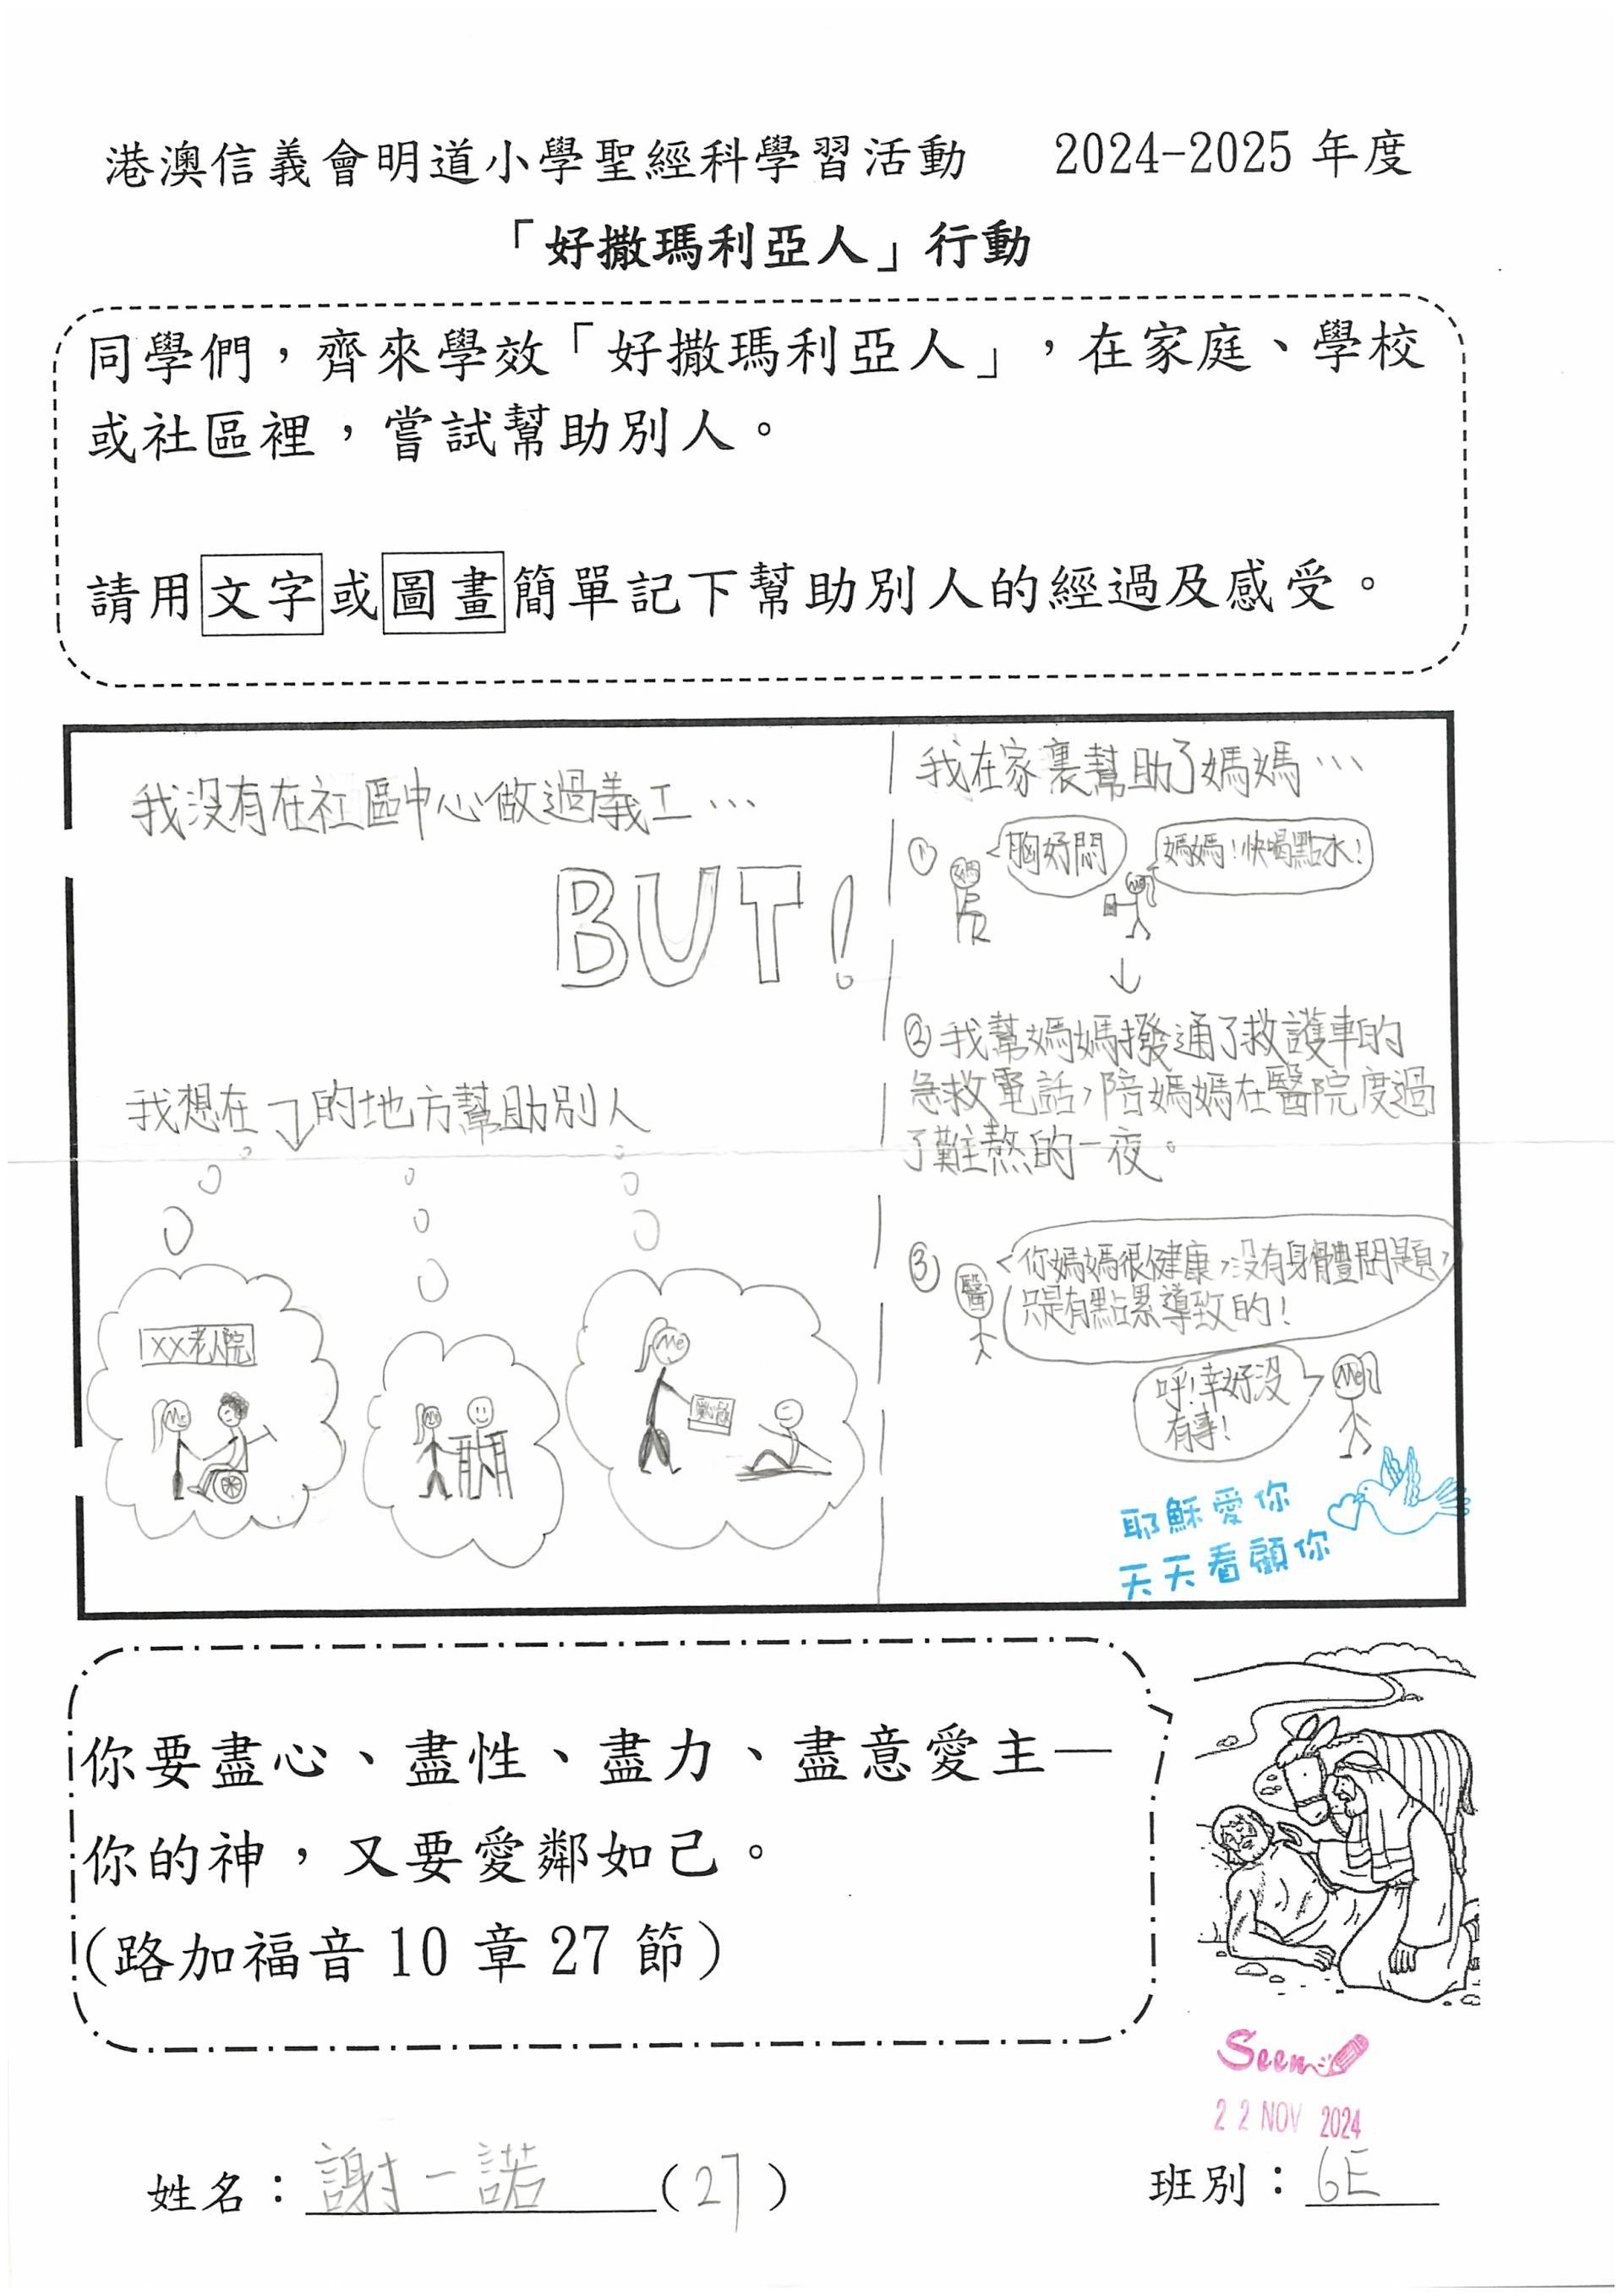 港澳信義會明道小學聖經科學習活動 2024-2025 年度
「好撒瑪利亞人」行動
同學們，齊來學效「好撒瑪利亞人」，在家庭、學校
或社區裡，嘗試幫助別人。
請用文字或圖畫簡單記下幫助別人的經過及感受。
我沒有在社區中心做過義工…
BUT!
我想在↴的地方幫助別人
XX老人院
Me
Me
Me
我在家裏幫助了媽媽…
①
媽
胸好悶
Me
媽媽！快喝點水！
↓
②我幫媽媽撥通了救護車的
急救電話，陪媽媽在醫院度過
了難熬的一夜。
③
醫
你媽媽很健康，沒有身體問題，
只是有點累導致的！
呼！幸好沒
有事！
Me
耶穌愛你
天天看顧你
你要盡心、盡性、盡力、盡意愛主—
你的神，又要愛鄰如己。
(路加福音 10 章 27 節)
Seen
22 NOV 2024
姓名：謝一諾(27)
班別：6E